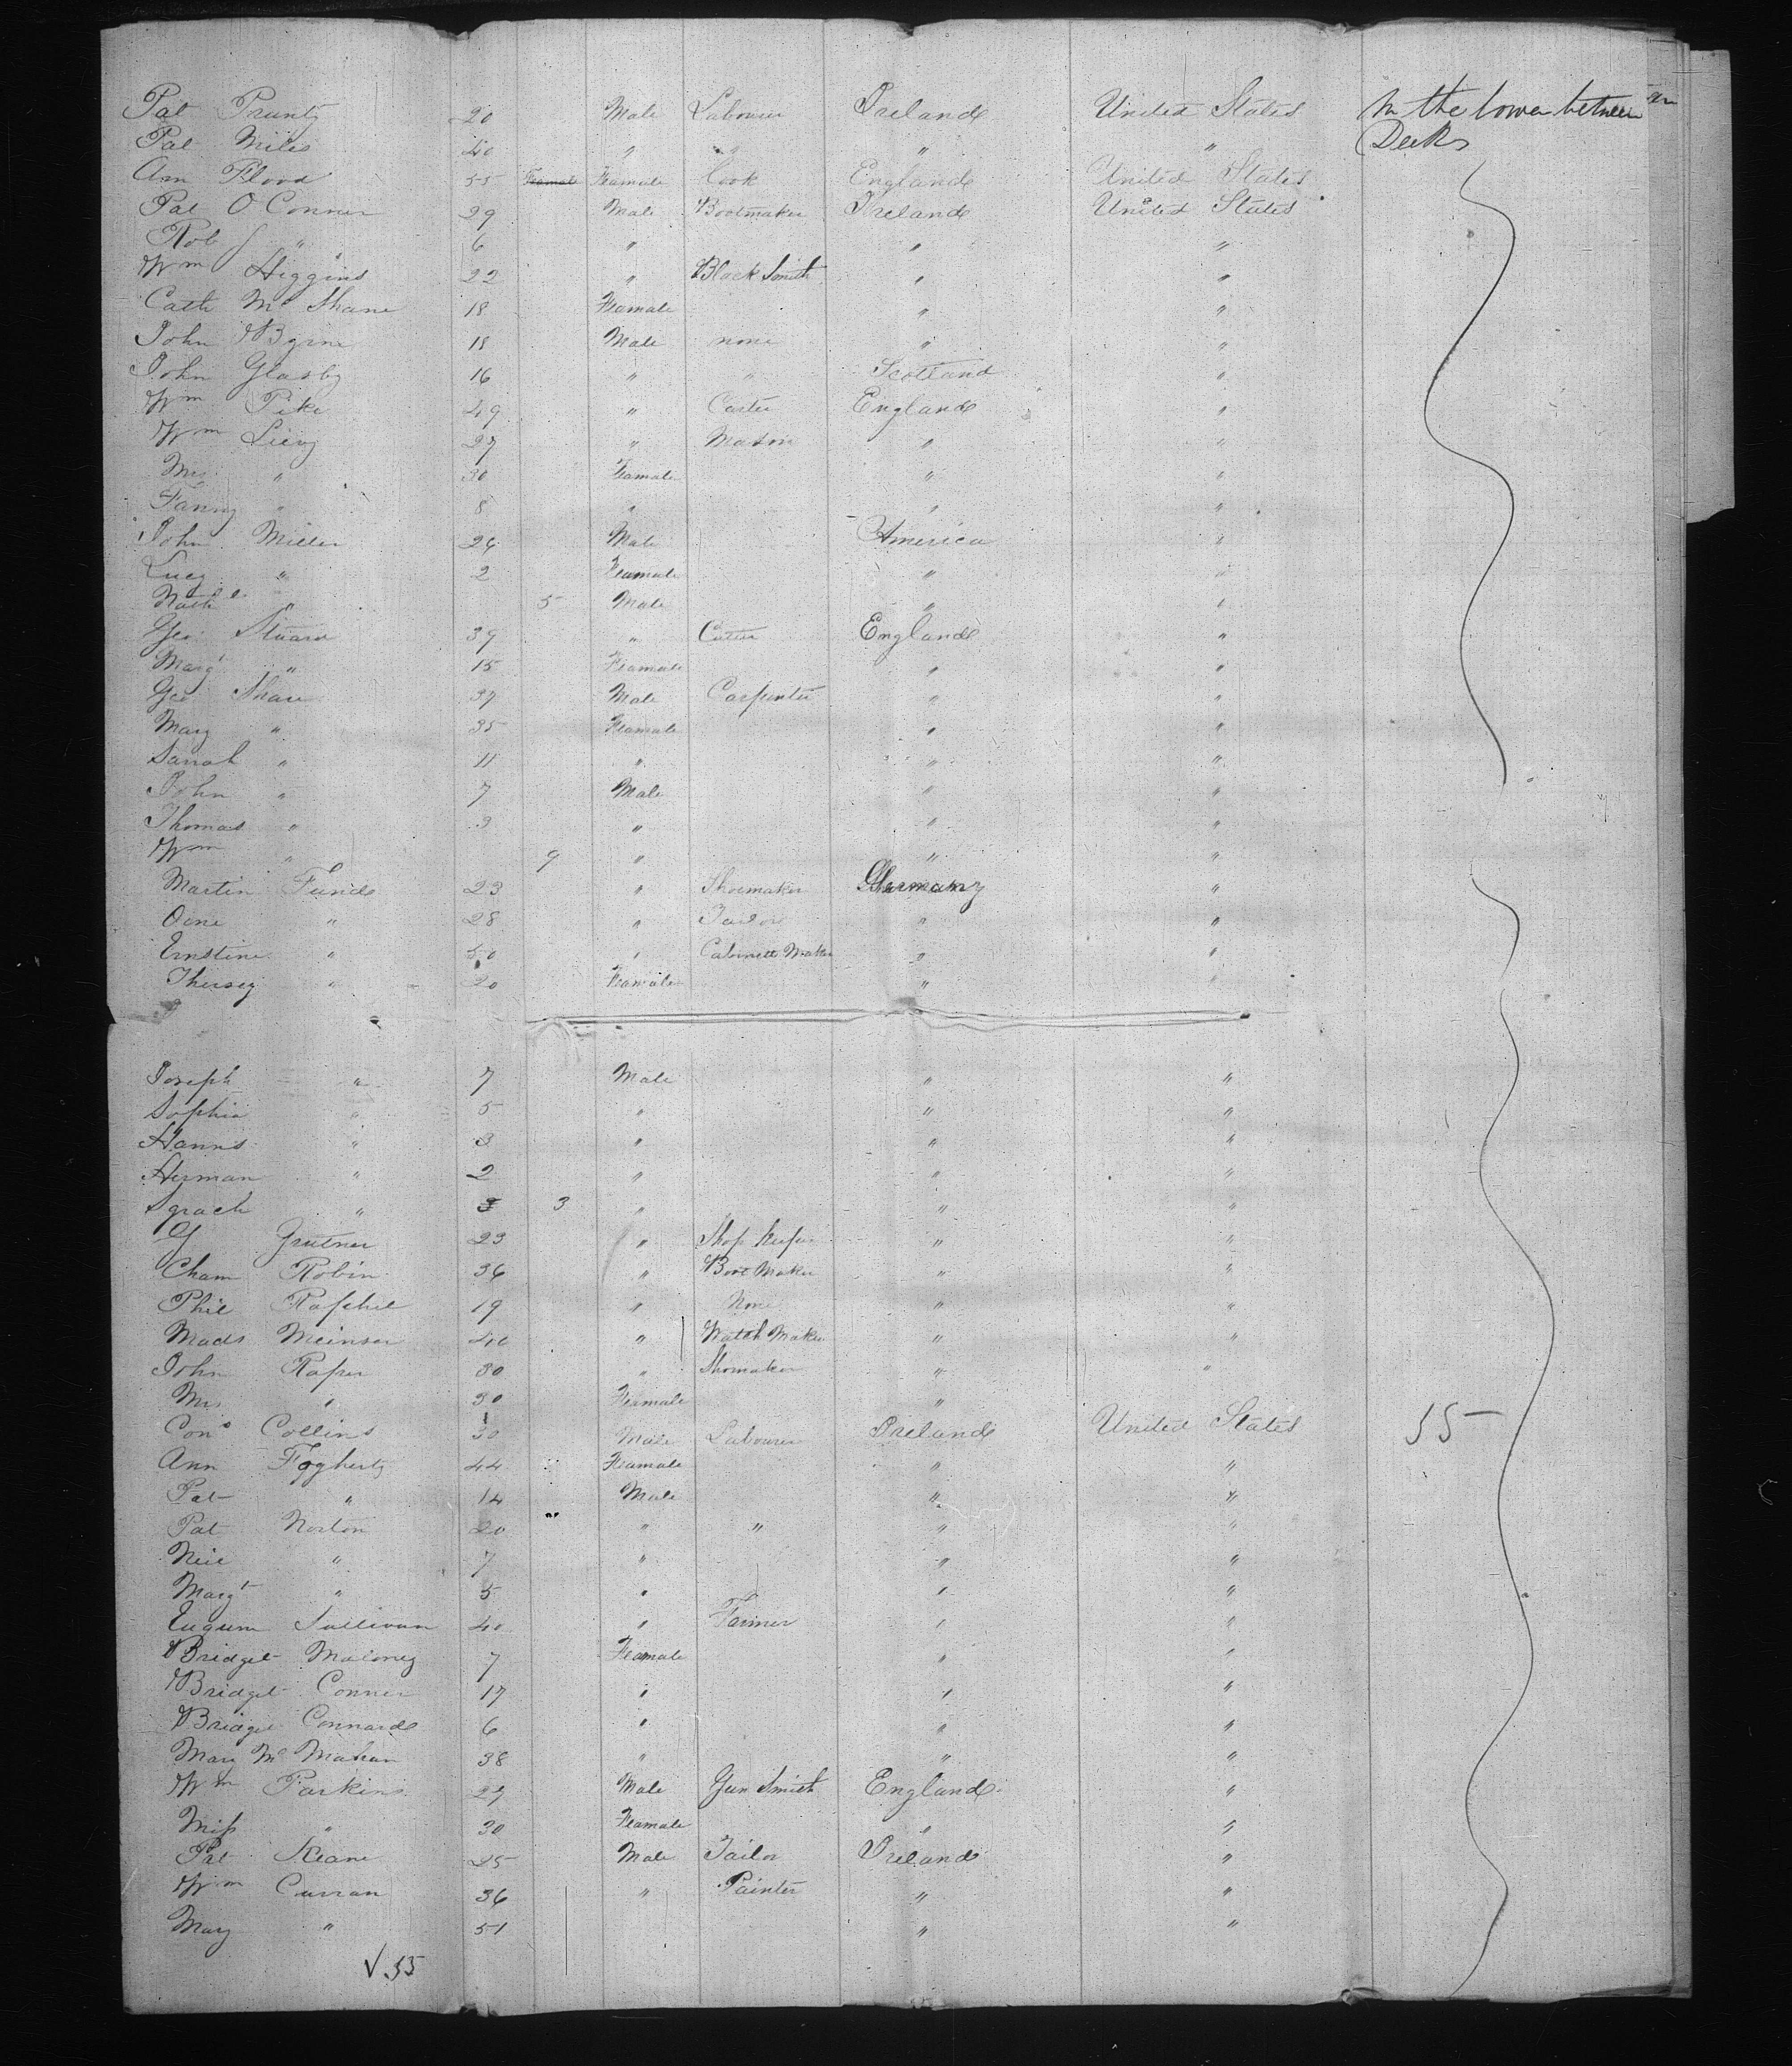 Pat Prunty 20 Male Labourer Ireland United States In the lower between
Pat Miles 40 " " " " Decks
Ann Flood 55 Feamale Feamale Cook England United States
Pat O Conner 29 Male Bootmaker Ireland United States
Rob " 6 " " "
Wm Higgins 22 " Black Smith " "
Cath Mc Shane 18 Feamale " "
John Byrne 18 Male none " "
John Glasby 16 " " Scotland "
Wm Pike 49 " Carter England "
Wm 27 " Mason " "
Mrs " 30 Feamale " "
Fanny " 8 " " "
John Miller 26 Male America "
Lucy " 2 Feamale " "
" 5 Male " "
Geo Stuard 39 " England "
Margt " 15 Feamale " "
Geo Shaw 37 Male Carpenter " "
Mary " 35 Feamale " "
Sarah " 11 " " "
John " 7 Male " "
Thomas " 3 " " "
Wm " 9 " " "
Martin Funds 23 " Shoemaker Germany "
" 28 " Tailor " "
Ernstine " 50 " Cabinett Maker " "
Thersey " 20 Feamale " "
Joseph " 7 Male " "
Sophia " 5 " " "
Hanns " 3 " " "
Herman " 2 " " "
" 3 3 " " "
G Grutner 23 " Shop Keeper " "
Cham Robin 36 " Boot Maker " "
Phil Raphel 19 " None " "
Mads Meinser 40 " Watch Maker " "
John Raper 30 " Shomaker " "
Mrs " 30 Feamale "
Cons Collins 30 Male Labourer Ireland United States 55
Ann Fogherty 44 Feamale " "
Pat " 14 Male " "
Pat Norton 20 " " " "
" 7 " " "
Margt " 5 " " "
Eugune Sullivan 40 " Farmer " "
Bridget Maloney 7 Feamale " "
Bridget Conner 17 " " "
Bridget Connards 6 " " "
Mary Mc Mahan 38 " " "
Wm Parkins 29 Male Gun Smith England "
Miss " 30 Feamale " "
Pat Keane 25 Male Tailor Ireland "
Wm Curran 36 " Painter " "
Mary " 51 " "
√ 55